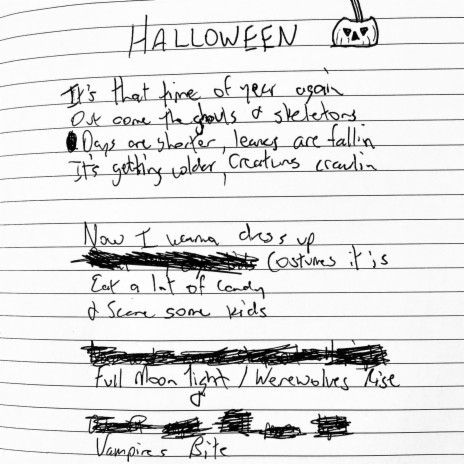 HALLOWEEN
It's that time of year again
Out come the ghouls & skeletons
Days are shorter, leaves are fallin
It's getting colder, Creatures crawlin
Now I wanna dress up
Costumes it is
Eat a lot of candy
& Scare some kids
Full Moon light / Werewolves Rise
&
Vampires Bite